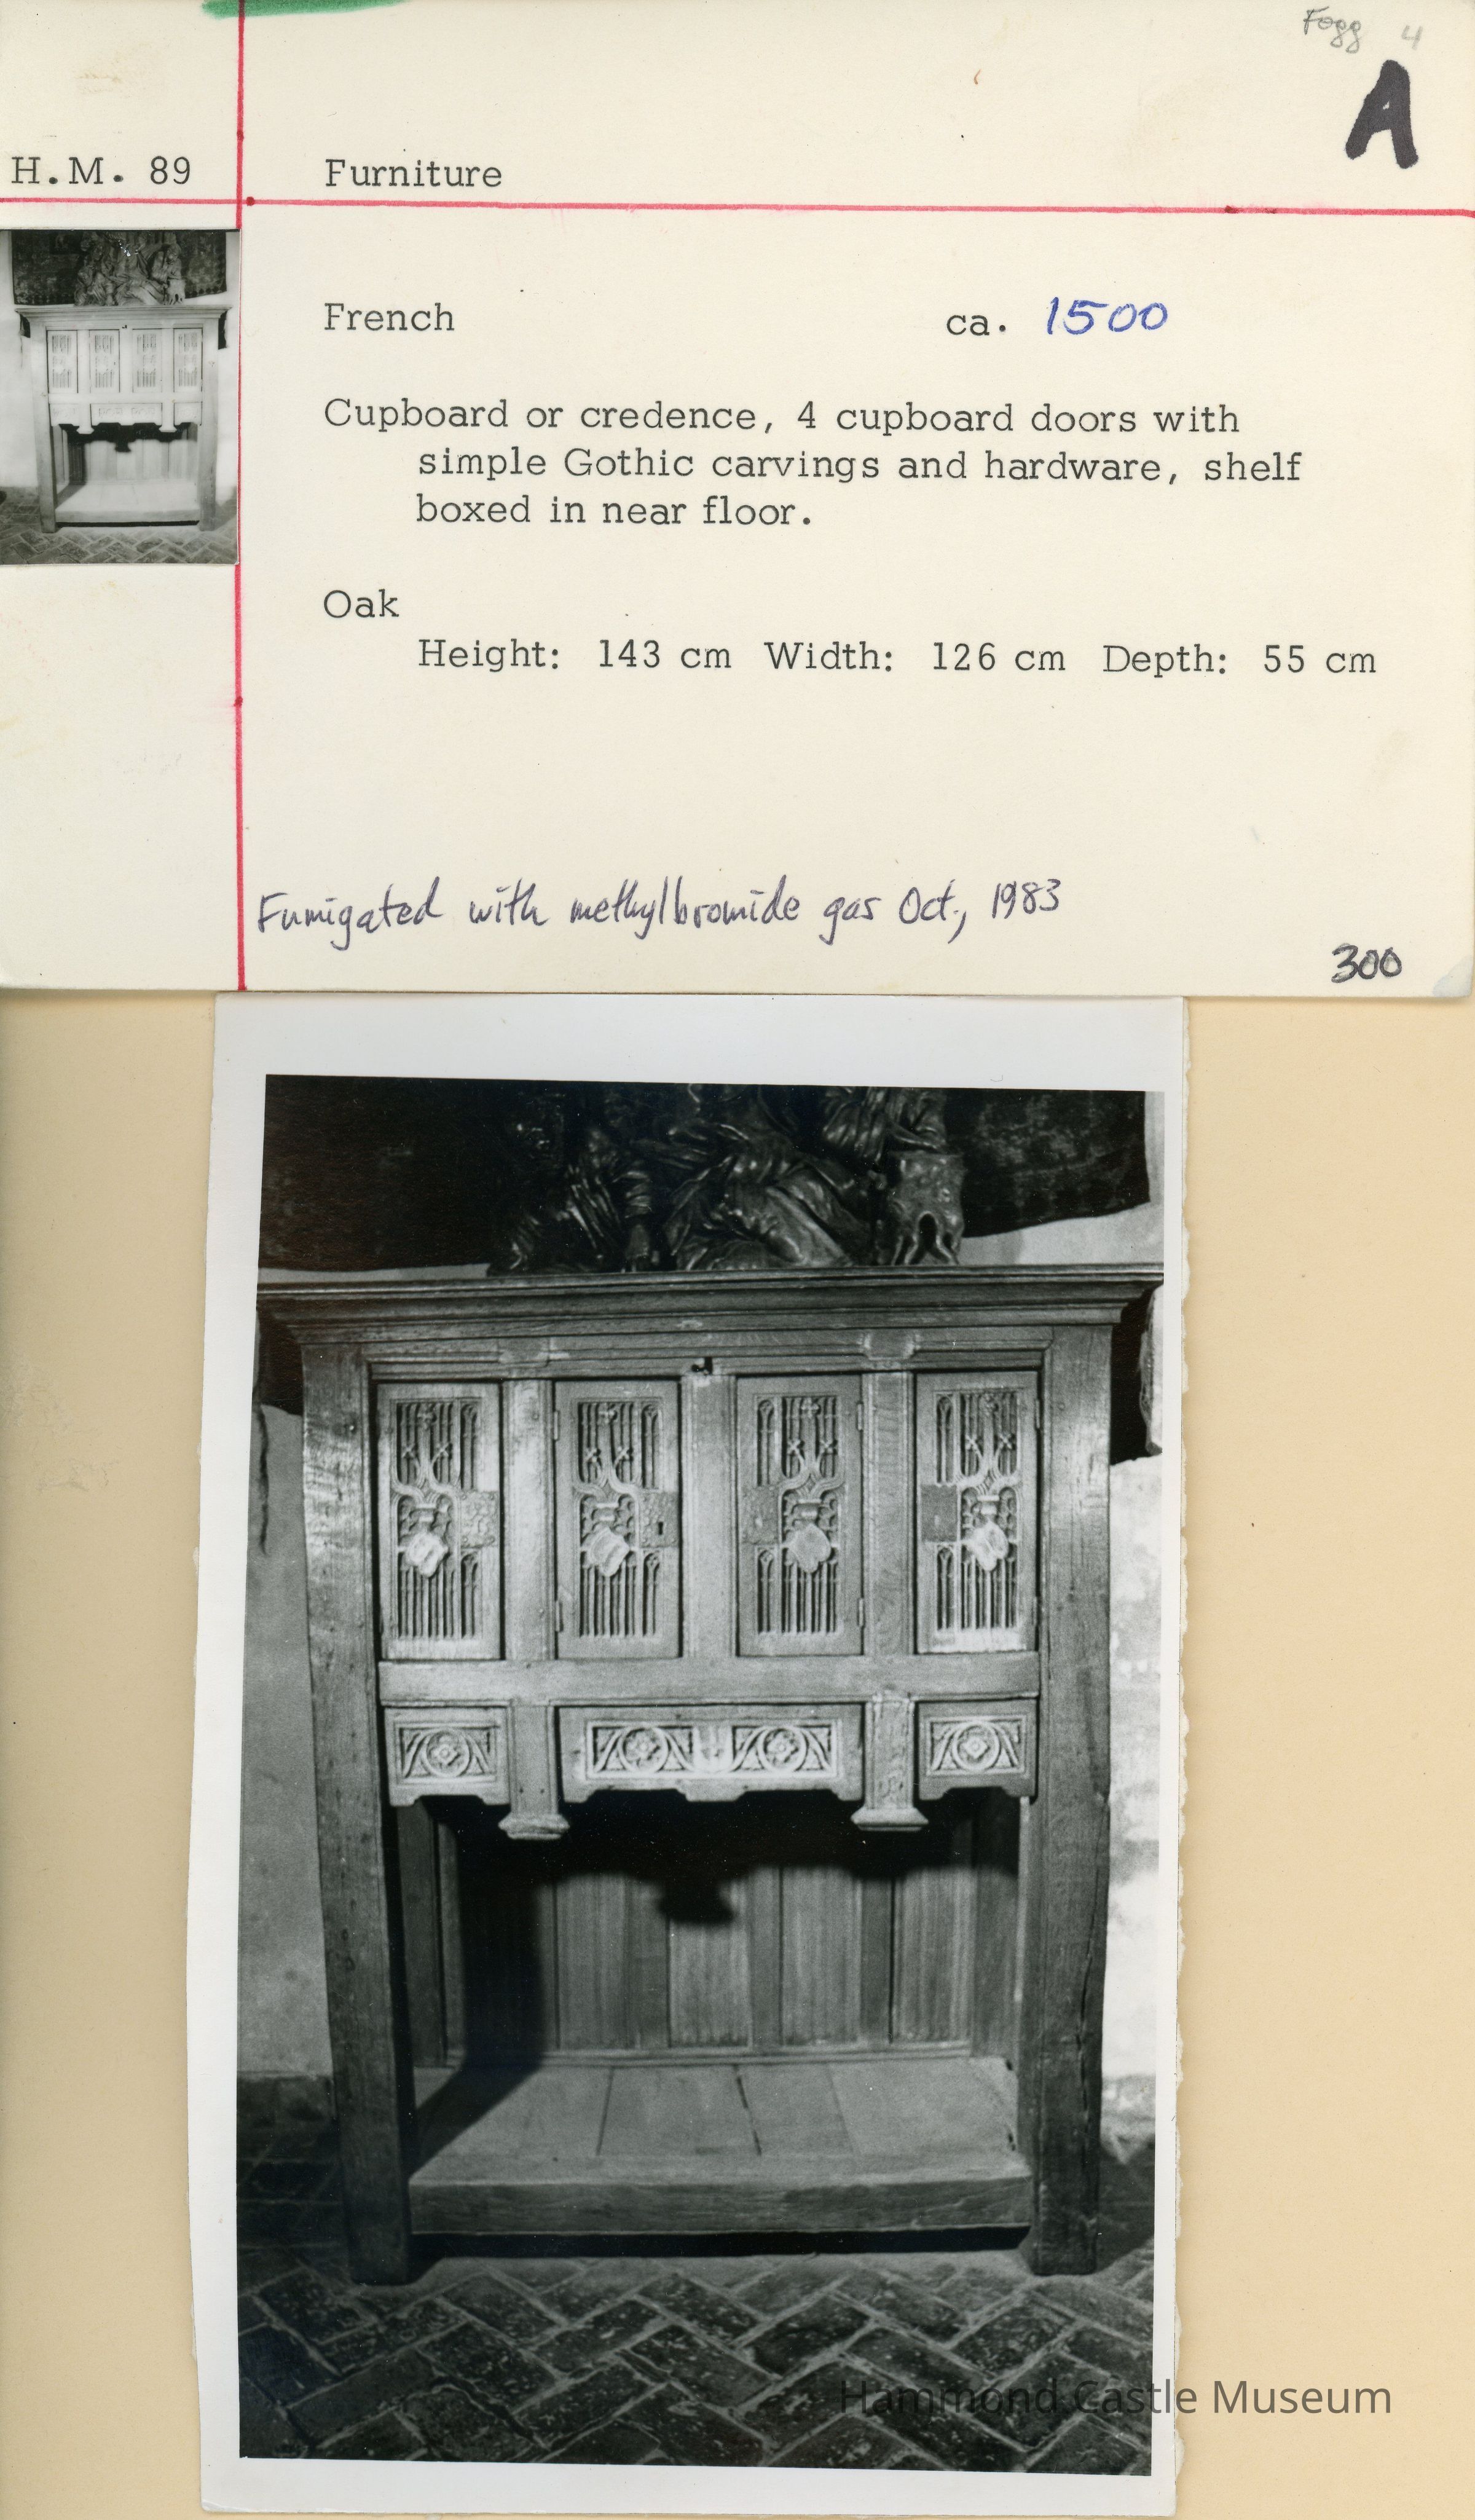 Fogg 4
A
H.M. 89 Furniture
French ca. 1500
Cupboard or credence, 4 cupboard doors with
simple Gothic carvings and hardware, shelf
boxed in near floor.
Oak
Height: 143 cm Width: 126 cm Depth: 55 cm
Fumigated with methylbromide gas Oct., 1983
300
Hammond Castle Museum